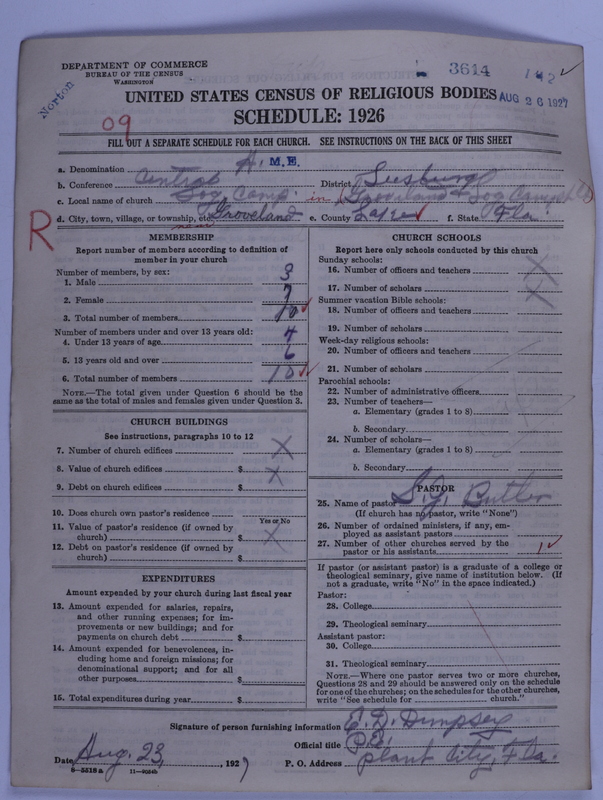 DEPARTMENT OF COMMERCE
BUREAU OF THE CENSUS
WASHINGTON
Norton
3614
UNITED STATES CENSUS OF RELIGIOUS BODIES
AUG 26 1927
SCHEDULE: 1926
09
FILL OUT A SEPARATE SCHEDULE FOR EACH CHURCH. SEE INSTRUCTIONS ON THE BACK OF THIS SHEET
a. Denomination A. M.E.
b. Conference Central District Leesburg
c. Local name of church Log Camp. in Groveland Log Camp
d. City, town, village, or township, etc. near Groveland e. County Lake f. State Fla.
R
MEMBERSHIP
Report number of members according to definition of member in your church
Number of members, by sex:
1. Male 3
2. Female 7
3. Total number of members 10
Number of members under and over 13 years old:
4. Under 13 years of age 4
5. 13 years old and over 6
6. Total number of members 10
NOTE.—The total given under Question 6 should be the same as the total of males and females given under Question 3.
CHURCH BUILDINGS
See instructions, paragraphs 10 to 12
7. Number of church edifices X
8. Value of church edifices $ X
9. Debt on church edifices $
10. Does church own pastor's residence
Yes or No
11. Value of pastor's residence (if owned by church) $ X
12. Debt on pastor's residence (if owned by church) $
EXPENDITURES
Amount expended by your church during last fiscal year
13. Amount expended for salaries, repairs, and other running expenses; for improvements or new buildings; and for payments on church debt $
14. Amount expended for benevolences, including home and foreign missions; for denominational support; and for all other purposes $
15. Total expenditures during year $
CHURCH SCHOOLS
Report here only schools conducted by this church
Sunday schools:
16. Number of officers and teachers X
17. Number of scholars X
Summer vacation Bible schools:
18. Number of officers and teachers
19. Number of scholars
Week-day religious schools:
20. Number of officers and teachers
21. Number of scholars
Parochial schools:
22. Number of administrative officers
23. Number of teachers—
a. Elementary (grades 1 to 8)
b. Secondary
24. Number of scholars—
a. Elementary (grades 1 to 8)
b. Secondary
PASTOR
25. Name of pastor S.G. Butler
(If church has no pastor, write "None")
26. Number of ordained ministers, if any, employed as assistant pastors
27. Number of other churches served by the pastor or his assistants 1
If pastor (or assistant pastor) is a graduate of a college or theological seminary, give name of institution below. (If not a graduate, write "No" in the space indicated.)
Pastor:
28. College
29. Theological seminary
Assistant pastor:
30. College
31. Theological seminary
NOTE.—Where one pastor serves two or more churches, Questions 28 and 29 should be answered only on the schedule for one of the churches; on the schedules for the other churches, write "See schedule for church."
Signature of person furnishing information E. D. Dempsey
Official title P.E.
Date Aug. 23, 1927 P. O. Address Plant City, Fla.
8—5518a 11—9054b